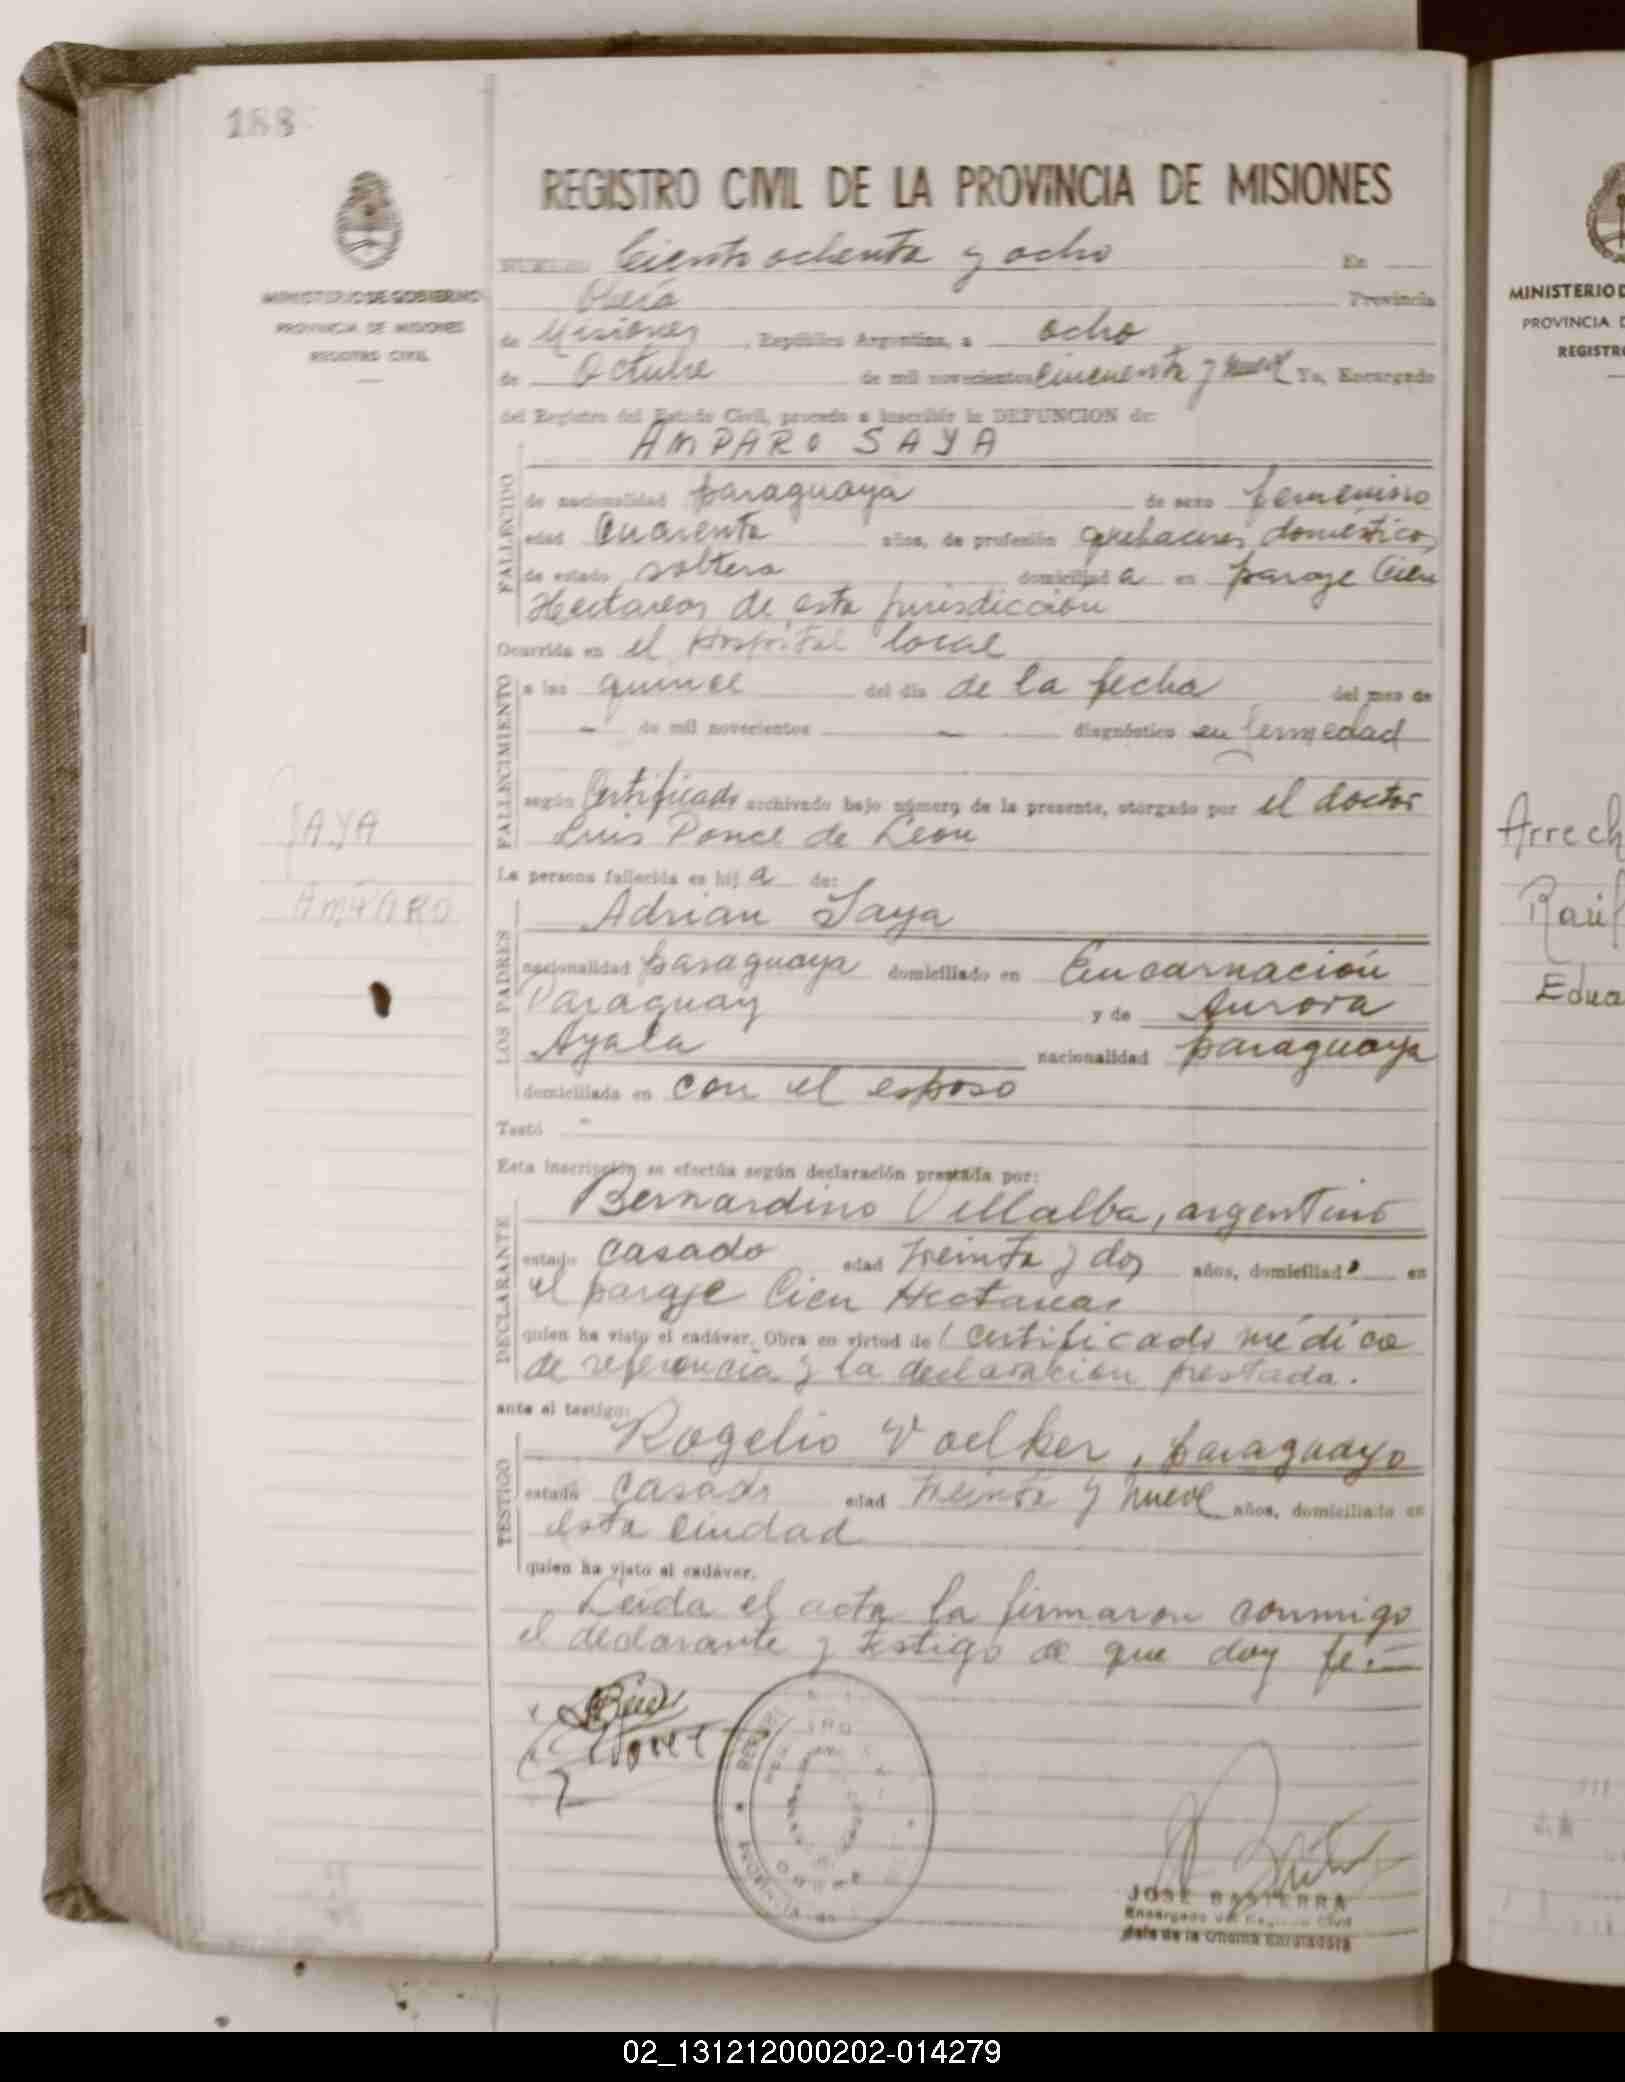 188
REGISTRO CIVIL DE LA PROVINCIA DE MISIONES
MINISTERIO DE GOBIERNO
PROVINCIA DE MISIONES
REGISTRO CIVIL
NUMERO Ciento ochenta y ocho En
Oberá Provincia
de Misiones, República Argentina, a ocho
de Octubre de mil novecientos cincuenta y nueve Yo, Encargado
del Registro del Estado Civil, procedo a inscribir la DEFUNCION de:
AMPARO SAYA
FALLECIDO
de nacionalidad paraguaya de sexo femenino
edad Cuarenta años, de profesión quehaceres domésticos
de estado soltera domiciliad a en paraje Cien
Hectareas de esta jurisdicción
Ocurrida en el Hospital local
FALLECIMIENTO
a las quince del día de la fecha del mes de
— de mil novecientos — diagnóstico enfermedad
según Certificado archivado bajo número de la presente, otorgado por el doctor
Luis Ponce de Leon
SAYA
AMPARO
La persona fallecida es hij a de:
LOS PADRES
Adrian Saya
nacionalidad paraguaya domiciliado en Encarnación
Paraguay y de Aurora
Ayala nacionalidad paraguaya
domiciliada en con el esposo
Testó -
Esta inscripción se efectúa según declaración prestada por:
DECLARANTE
Bernardino Villalba, argentino
estado casado edad treinta y dos años, domiciliad o en
el paraje Cien Hectareas
quien ha visto el cadáver. Obra en virtud de certificado médico
de referencia y la declaración prestada.
ante el testigo:
TESTIGO
Rogelio Voelker, paraguayo
estado casado edad treinta y nueve años, domiciliado en
esta ciudad
quien ha visto el cadáver.
Leída el acta la firmaron conmigo
el declarante y testigo de que doy fe.—
JOSE BASTERRA
Encargado del Registro Civil
Jefe de la Oficina Enroladora
MINISTERIO D
PROVINCIA D
REGISTR
Arrech
Raúl
Edua
02_131212000202-014279